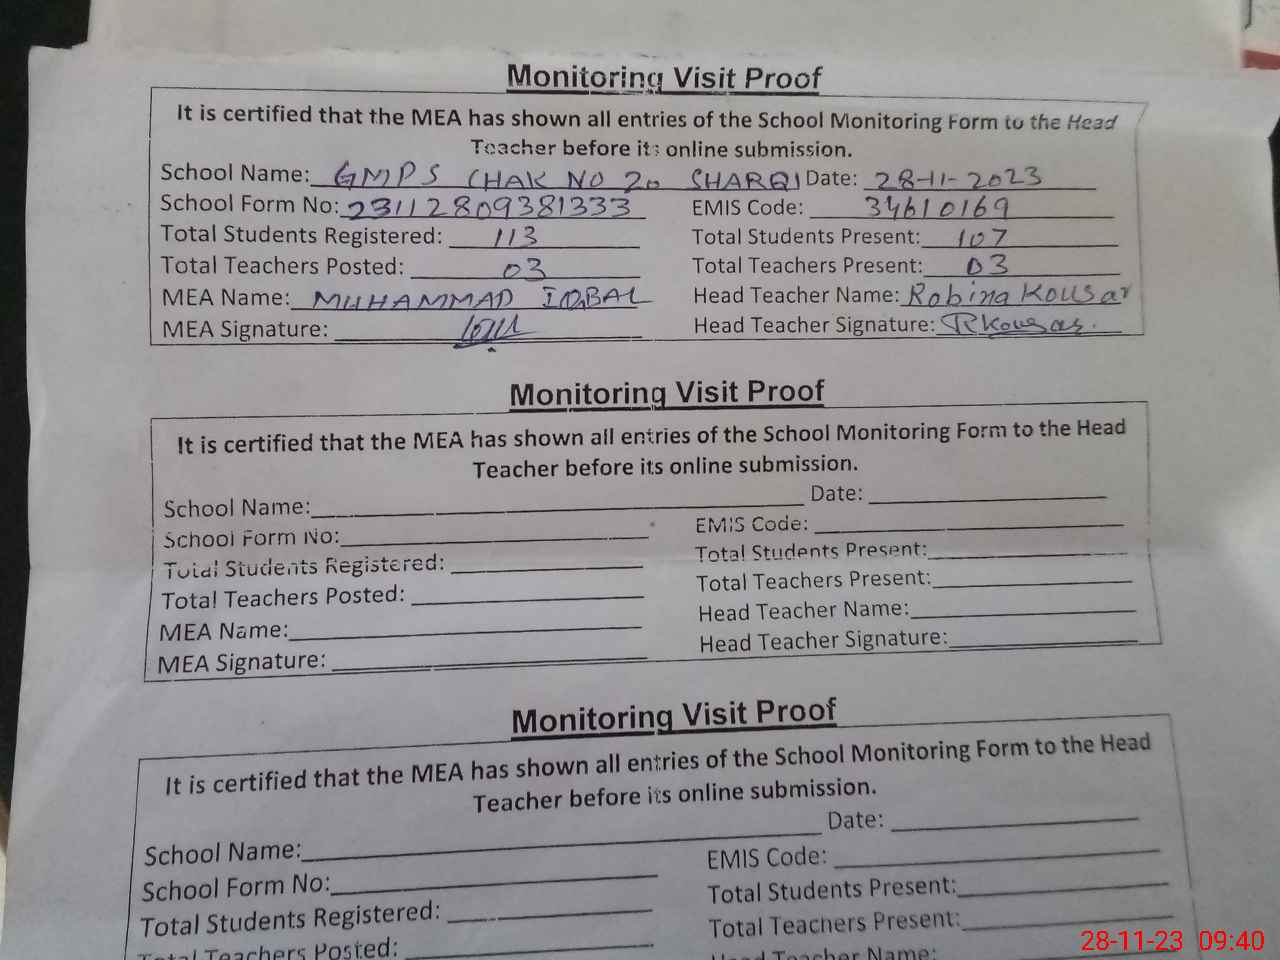 Monitoring Visit Proof
It is certified that the MEA has shown all entries of the School Monitoring Form to the Head
Teacher before its online submission.
School Name: GMPS CHAK NO 20 SHARQI Date: 28-11-2023
School Form No: 23112809381333 EMIS Code: 34610169
Total Students Registered: 113 Total Students Present: 107
Total Teachers Posted: 03 Total Teachers Present: 03
MEA Name: MUHAMMAD IQBAL Head Teacher Name: Robina Kousar
MEA Signature: Head Teacher Signature: RKousar.
Monitoring Visit Proof
It is certified that the MEA has shown all entries of the School Monitoring Form to the Head
Teacher before its online submission.
School Name: Date:
School Form No: EMIS Code:
Total Students Registered: Total Students Present:
Total Teachers Posted: Total Teachers Present:
MEA Name: Head Teacher Name:
MEA Signature: Head Teacher Signature:
Monitoring Visit Proof
It is certified that the MEA has shown all entries of the School Monitoring Form to the Head
Teacher before its online submission.
School Name: Date:
School Form No: EMIS Code:
Total Students Registered: Total Students Present:
Total Teachers Posted: Total Teachers Present:
Head Teacher Name:
28-11-23 09:40